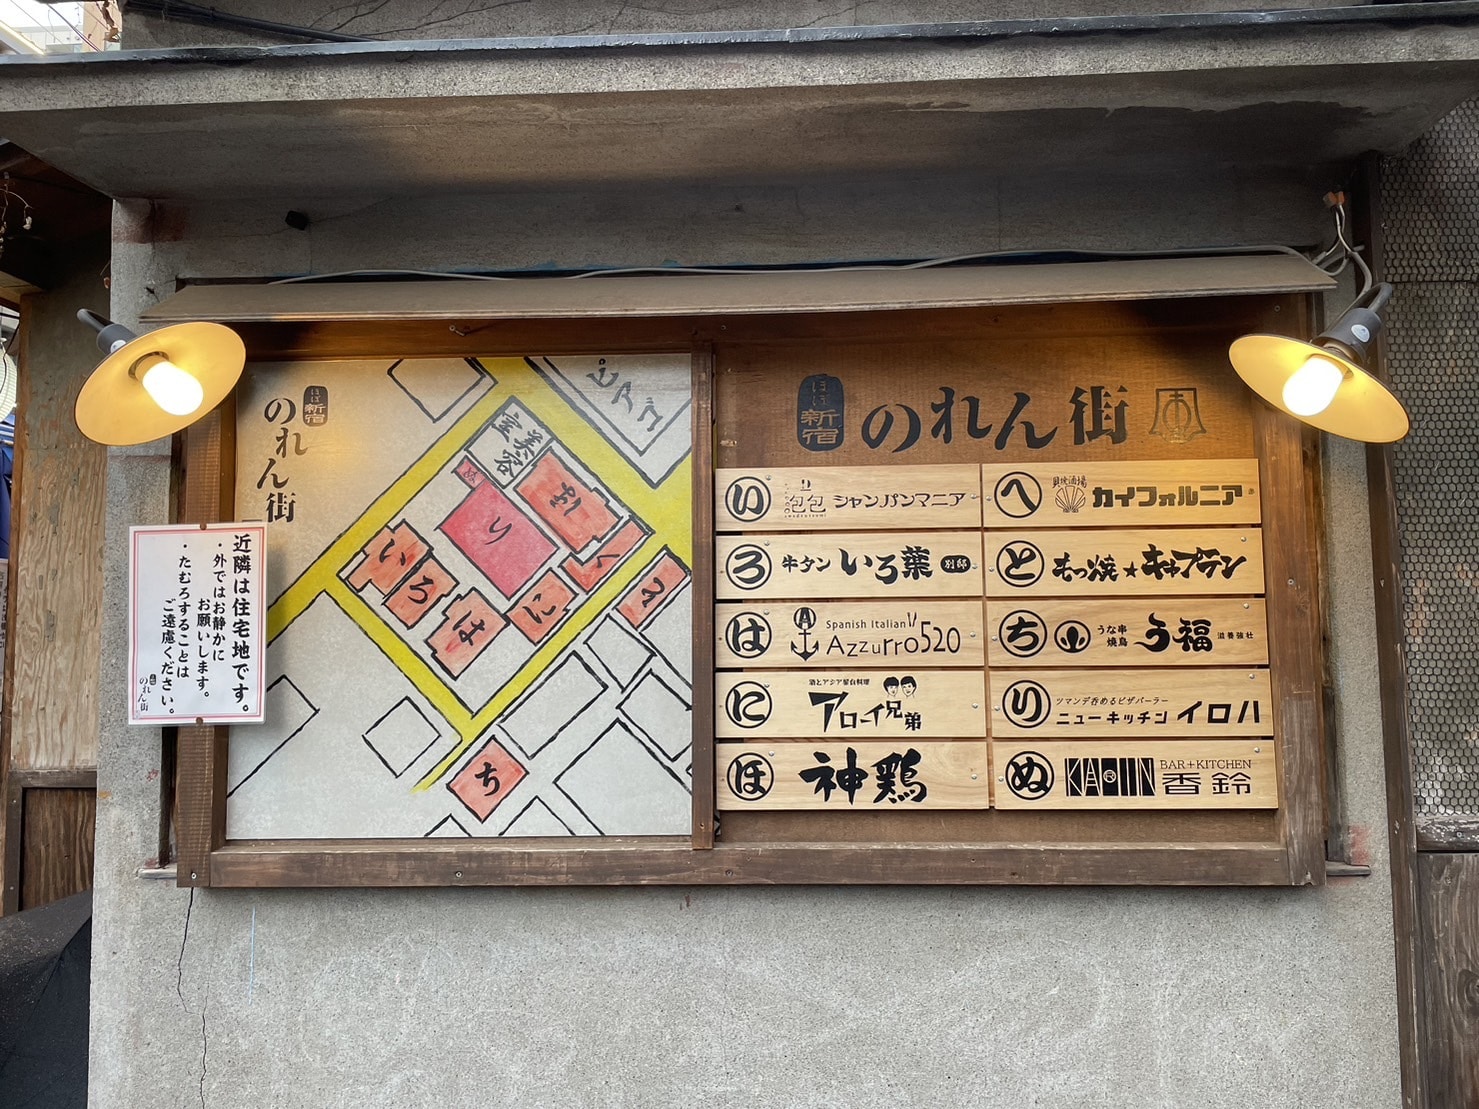 ほぼ新宿
のれん街
ピアゴ
美容室
ぬ
り
ほ
へ
と
い
ろ
は
に
ち
近隣は住宅地です。
・外ではお静かに
お願いします。
・たむろすることは
ご遠慮ください。
のれん街
ほぼ新宿
のれん街
い
泡包
シャンパンマニア
ろ
牛タン いろ葉 別邸
は
Spanish Italian
Azzurro520
に
酒とアジア屋台料理
アローイ兄弟
ほ
神鶏
へ
貝焼酒場
カイフォルニア
と
もつ焼★キャプテン
ち
うな串
焼鳥
う福
滋養強壮
り
ツマンデ呑めるピザパーラー
ニューキッチン イロハ
ぬ
KARIN
BAR+KITCHEN
香鈴